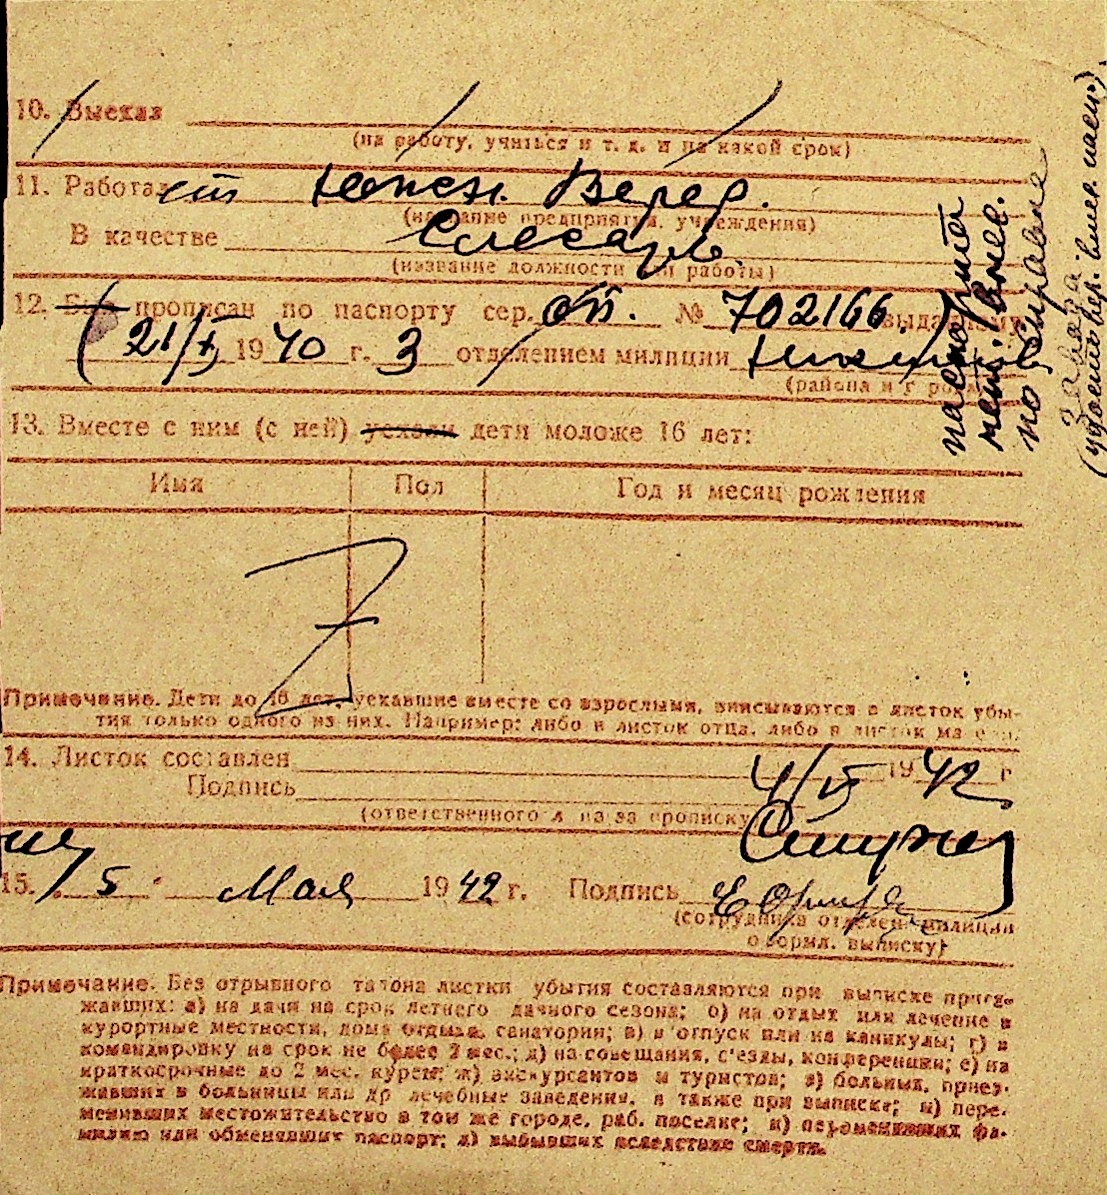 10. Выехал
(на работу, учиться и т. д. и на какой срок)
11. Работает
(название предприятия, учреждения)
В качестве Слесарь
(название должности или работы)
12. Был прописан по паспорту сер. № 702166, выданному
21/X 1940 г. 3 отделением милиции
(района и г
13. Вместе с ним (с ней) уехали дети моложе 16 лет:
Имя Пол Год и месяц рождения
Z
Примечание. Дети до 16 лет, уехавшие вместе со взрослыми, вписываются в листок убы-
тия только одного из них. Например: либо в листок отца, либо в листок матери.
14. Листок составлен 4/V 1942 г
Подпись
(ответственного лица за прописку
15. 5 Мая 1942 г. Подпись
(сотрудника отделен. милиции
оформл. выписку)
Примечание. Без отрывного талона листки убытия составляются при выписке приез-
жавших: а) на дачи на срок летнего дачного сезона; б) на отдых или лечение в
курортные местности, дома отдыха, санатории; в) в отпуск или на каникулы; г) в
командировку на срок не более 2 мес.; д) на совещания, с'езды, конференции; е) на
краткосрочные до 2 мес. курсы; ж) экскурсантов и туристов; з) больных, приез-
жавших в больницы или др лечебные заведения, а также при выписке; и) пере-
менивших местожительство в том же городе, раб. поселке; к) переменивших фа-
милию или обменявших паспорт; л) выбывших вследствие смерти.
паспорта
нет.
по справке
завода